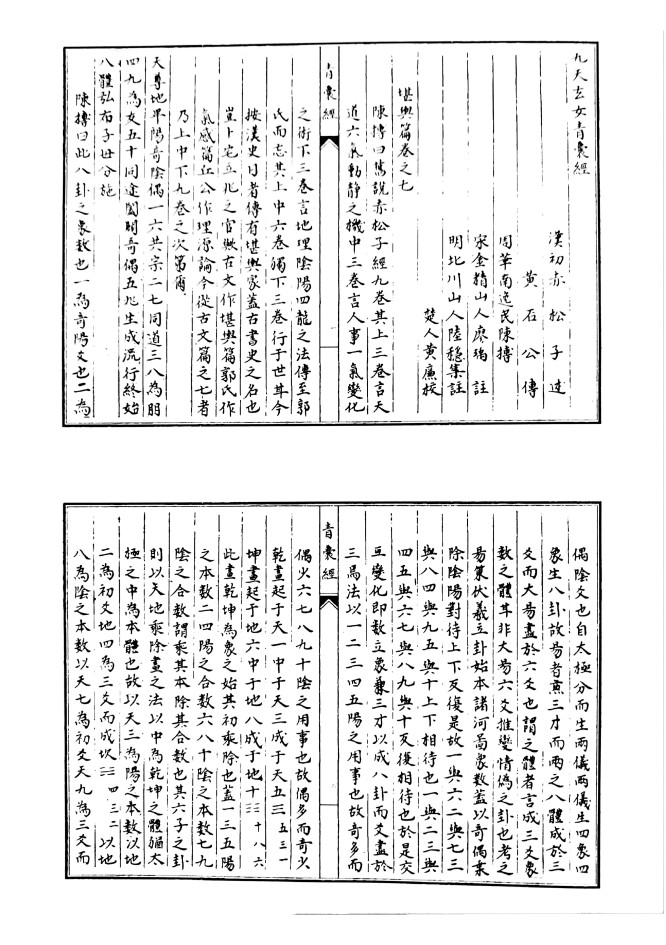 九天玄女青囊經
漢初赤松子述
黃石公傳
周華南逸民陳摶
宋金精山人廖瑀註
明北川山人陸穩集註
楚人黃廉校
堪輿篇卷之七
陳摶曰舊說赤松子經九卷其上三卷言天
道六氣動静之機中三卷言人事一氣變化
青囊經
之術下三卷言地理陰陽四龍之法傳至郭
氏而忘其上中六卷獨下三卷行于世耳今
按漢史日者傳有堪輿家蓋古書史之名也
豈卜宅立兆之官歟古文作堪輿篇郭氏作
氣感篇江公作理源論今從古文篇之七者
乃上中下九卷之次第爾
天尊地卑陽奇陰偶一六共宗二七同道三八為朋
四九為友五十同途闔闢奇偶五兆生成流行終始
八體弘布子母分施
陳摶曰此八卦之象數也一為奇陽爻也二為
偶陰爻也自太極分而生兩儀兩儀生四象四
象生八卦故易者兼三才而兩之八體成於三
爻而大易盡於六爻也謂之體者言成三爻象
數之體耳非大易六爻推變情偽之卦也考之
易策伏羲立卦始本諸河圖象數蓋以奇偶乘
除陰陽對待上下反復是故一與六二與七三
與八四與九五與十上下相待也一與二三與
四五與六七與八九與十反復相待也於是交
互變化即數立象兼三才以成八卦而爻盡於
三焉法以一二三四五陽之用事也故奇多而
青囊經
偶少六七八九十陰之用事也故偶多而奇少
乾畫起于天一中于天三成于天五☰五三一
坤畫起于地六中于地八成于地十☷十八六
此畫乾坤為象之始其初乘除也蓋一三五陽
之本數二四陽之合數六八十陰之本數七九
陰之合數謂乘其本除其合數也其六子之卦
則以天地乘除畫之法以中為乾坤之體猶太
極之中為本體也故以天三為陽之本數以地
二為初爻地四為三爻而成坎☵四三二以地
八為陰之本數以天七為初爻天九為三爻而